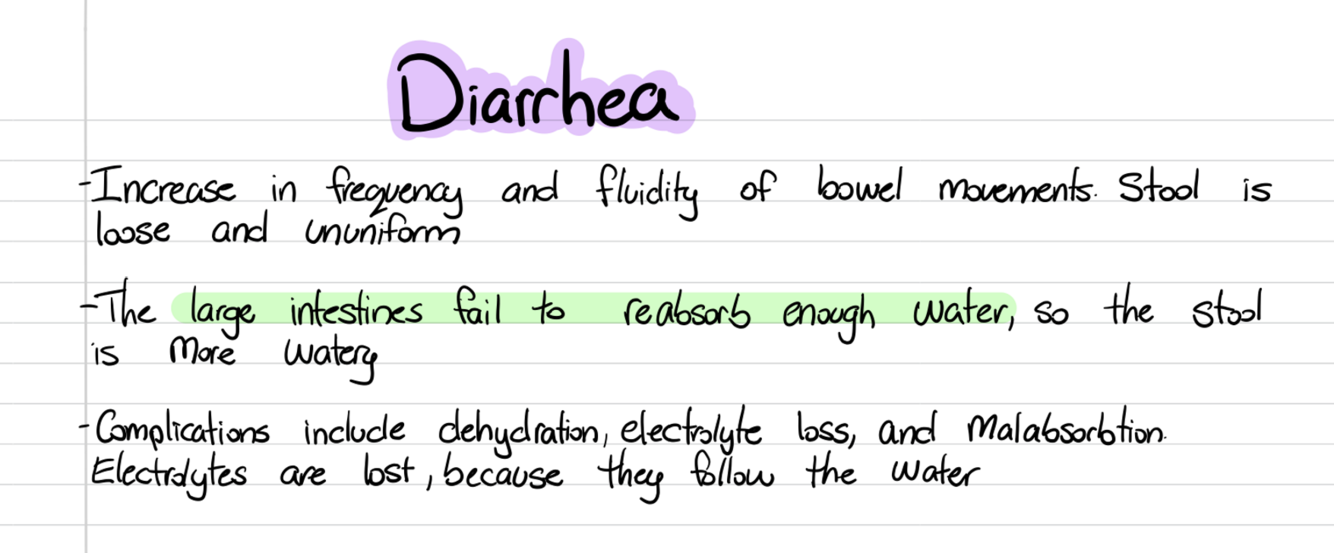 Diarrhea
-Increase in frequency and fluidity of bowel movements. Stool is
loose and ununiform
-The large intestines fail to reabsorb enough water, so the stool
is more watery
-Complications include dehydration, electrolyte loss, and malabsorbtion.
Electrolytes are lost, because they follow the water